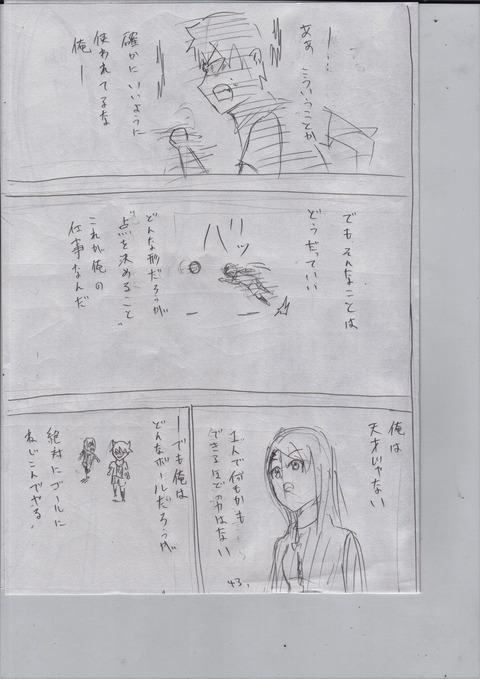 ――ああ こういうことか
確かに いいように
使われてるな
俺ー
でもそんなことは
どうだっていい
バッ
どんな形だろうが
"点を決めること"
これが俺の
仕事なんだ
俺は
天才じゃない
1人で何もかも
できるほどの力はない
―でも俺は
どんなボールだろうが
絶対にゴールに
ねじこんでやる
43.